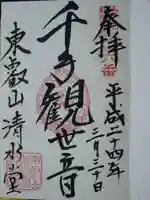 奉拝
平成二十四年
二月二十日
千手観世音
東叡山清水堂